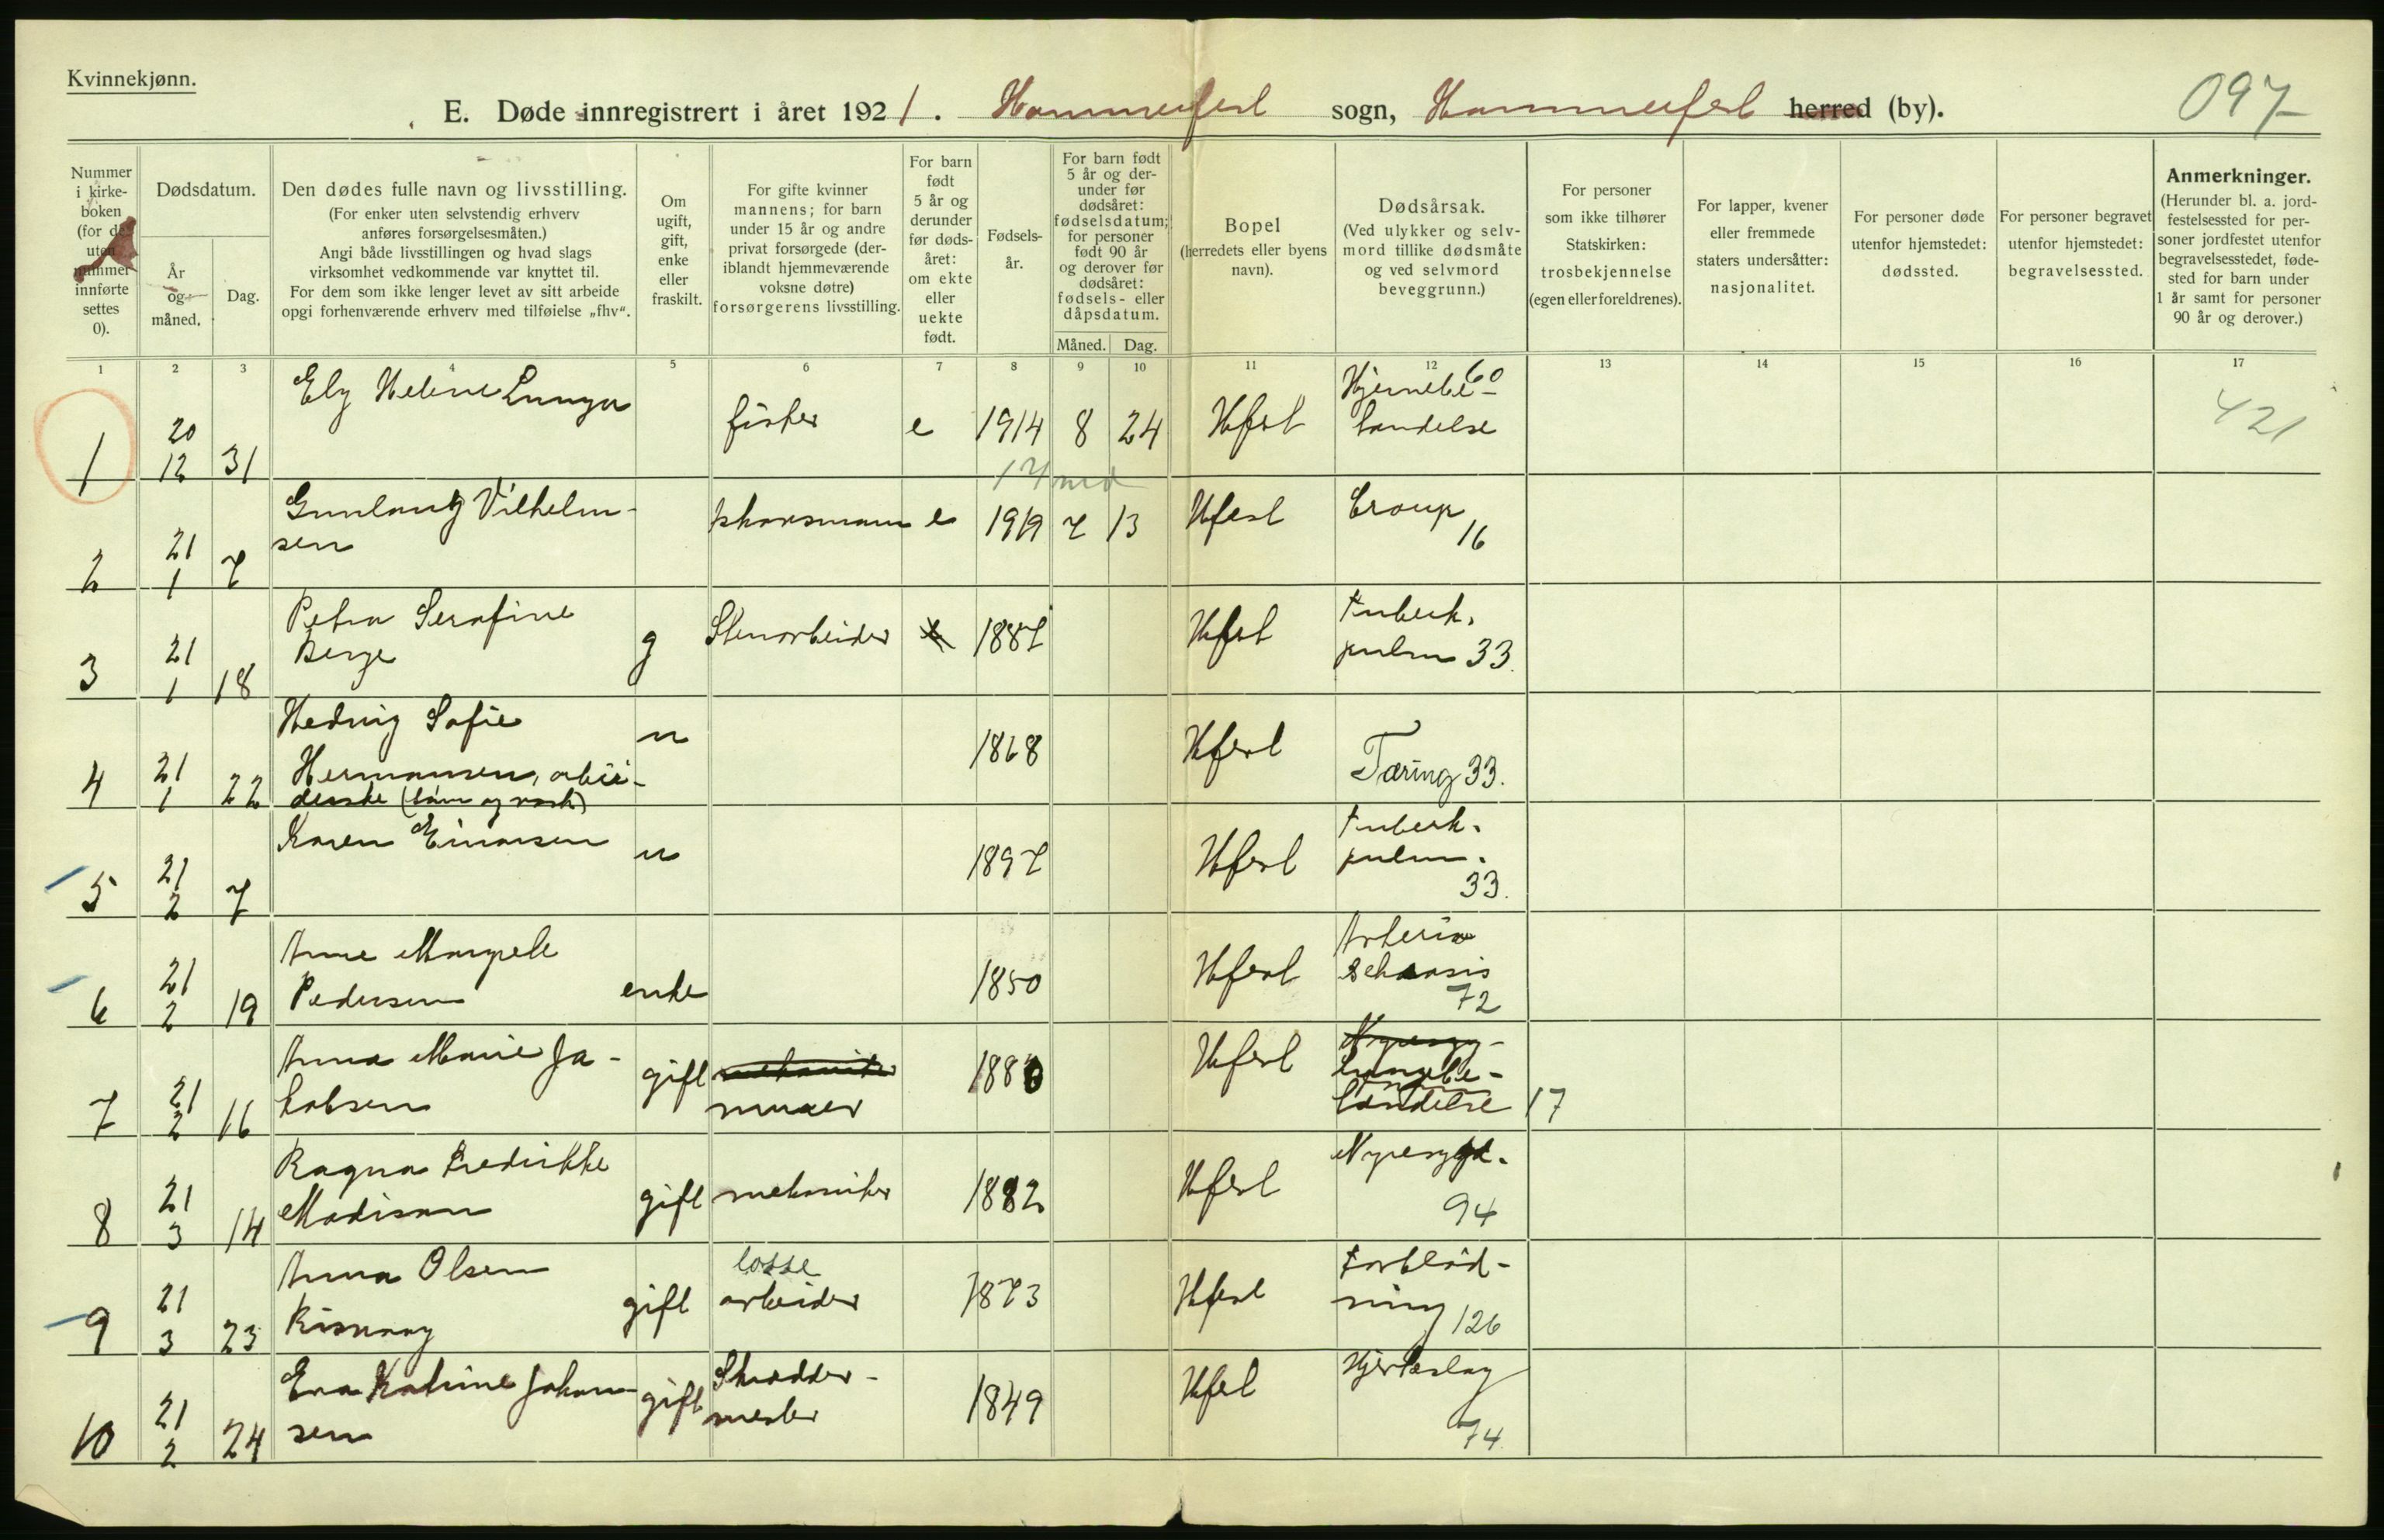 Kvinnekjønn.
E. Døde innregistrert i året 1921. Hammerfest sogn, Hammerfest herred (by).
097
Nummer
i kirke-
boken
(for de
uten
nummer
innførte
settes
0).
Dødsdatum.
År
og
måned.
Dag.
Den dødes fulle navn og livsstilling.
(For enker uten selvstendig erhverv
anføres forsørgelsesmåten.)
Angi både livsstillingen og hvad slags
virksomhet vedkommende var knyttet til.
For dem som ikke lenger levet av sitt arbeide
opgi forhenværende erhverv med tilføielse „fhv“.
Om
ugift,
gift,
enke
eller
fraskilt.
For gifte kvinner
mannens; for barn
under 15 år og andre
privat forsørgede (der-
iblandt hjemmeværende
voksne døtre)
forsørgerens livsstilling.
For barn
født
5 år og
derunder
før døds-
året:
om ekte
eller
uekte
født.
Fødsels-
år.
For barn født
5 år og der-
under før
dødsåret:
fødselsdatum;
for personer
født 90 år
og derover før
dødsåret:
fødsels- eller
dåpsdatum.
Måned. Dag.
Bopel
(herredets eller byens
navn).
Dødsårsak.
(Ved ulykker og selv-
mord tillike dødsmåte
og ved selvmord
beveggrunn.)
For personer
som ikke tilhører
Statskirken:
trosbekjennelse
(egen eller foreldrenes).
For lapper, kvener
eller fremmede
staters undersåtter:
nasjonalitet.
For personer døde
utenfor hjemstedet:
dødssted.
For personer begravet
utenfor hjemstedet:
begravelsessted.
Anmerkninger.
(Herunder bl. a. jord-
festelsessted for per-
soner jordfestet utenfor
begravelsesstedet, føde-
sted for barn under
1 år samt for personer
90 år og derover.)
1 2 3 4 5 6 7 8 9 10 11 12 13 14 15 16 17
1 20 12 31 Ely Helene fisker e 1914 8 24 Hfest Hjernebe-
tendelse 60 421
2 21 1 7 Gunlaug Vilhelm-
sen e 1919 7 13 Hfest Croup 16
3 21 1 18 Petra Serafine
Berge g Stenarbeider 1887 Hfest Tuberk.
pulm 33.
4 21 1 22 Hedvig Sofie
Hermansen, arbei-
derske u 1868 Hfest Tæring 33.
5 21 2 7 Karen Einarsen u 1897 Hfest Tuberk.
pulm.
33.
6 21 2 19 Anne Margrete
Pedersen enke 1850 Hfest Arterio
72
7 21 2 16 Anna Marie Ja-
kobsen gift mekaniker
murer 1880 Hfest Lungebe-
tændelse 17
8 21 3 14 Ragna Fredrikke
Madisen gift mekaniker 1882 Hfest Nyresygd.
94
9 21 3 23 Anna Olsen
gift losse
arbeider 1873 Hfest Forblød-
ning 126
10 21 2 24 Eva Katrine Johan-
sen gift Skrædder-
mester 1849 Hfest Hjerteslag
74.